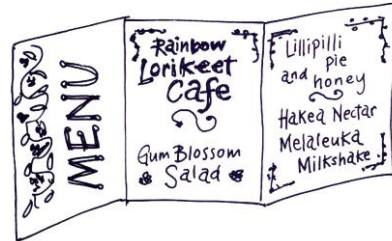 MENU
Rainbow
Lorikeet
Cafe
Gum Blossom
Salad
Lillipilli
pie
and
honey
Hakea Nectar
Melaleuka
Milkshake